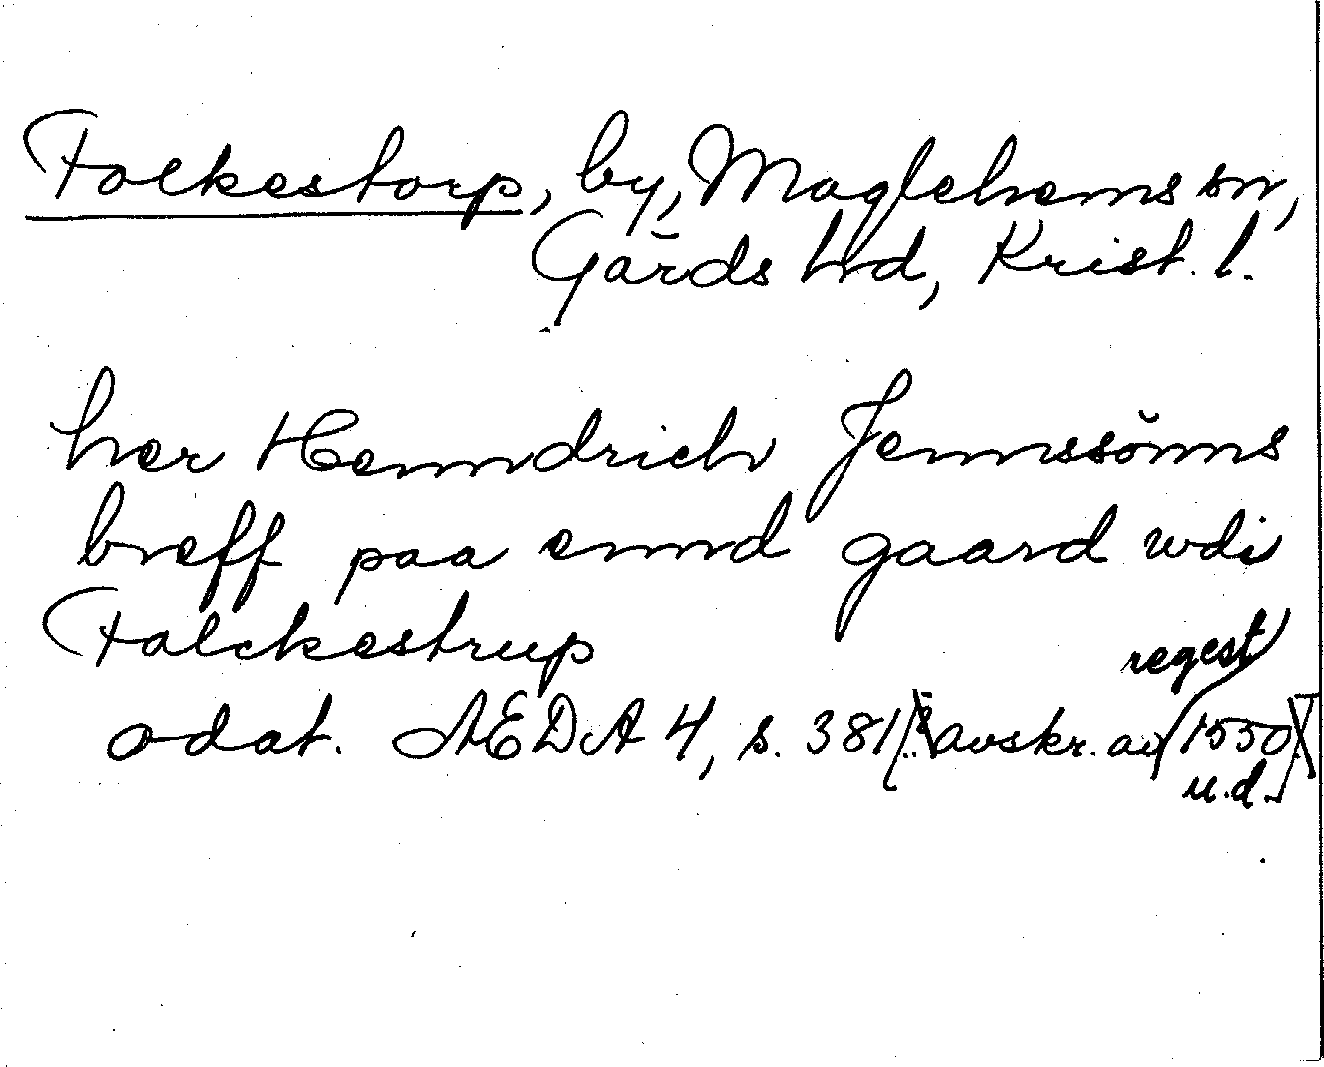 Folkestorp, by, Maglehems sn,
Gärds hd, Krist. l.
her Henndrich Jennssönns
breff paa ennd gaard wdi
Falckestrup
regest
odat. ÆDA 4, s. 381 avskr. av 1550
u.d.